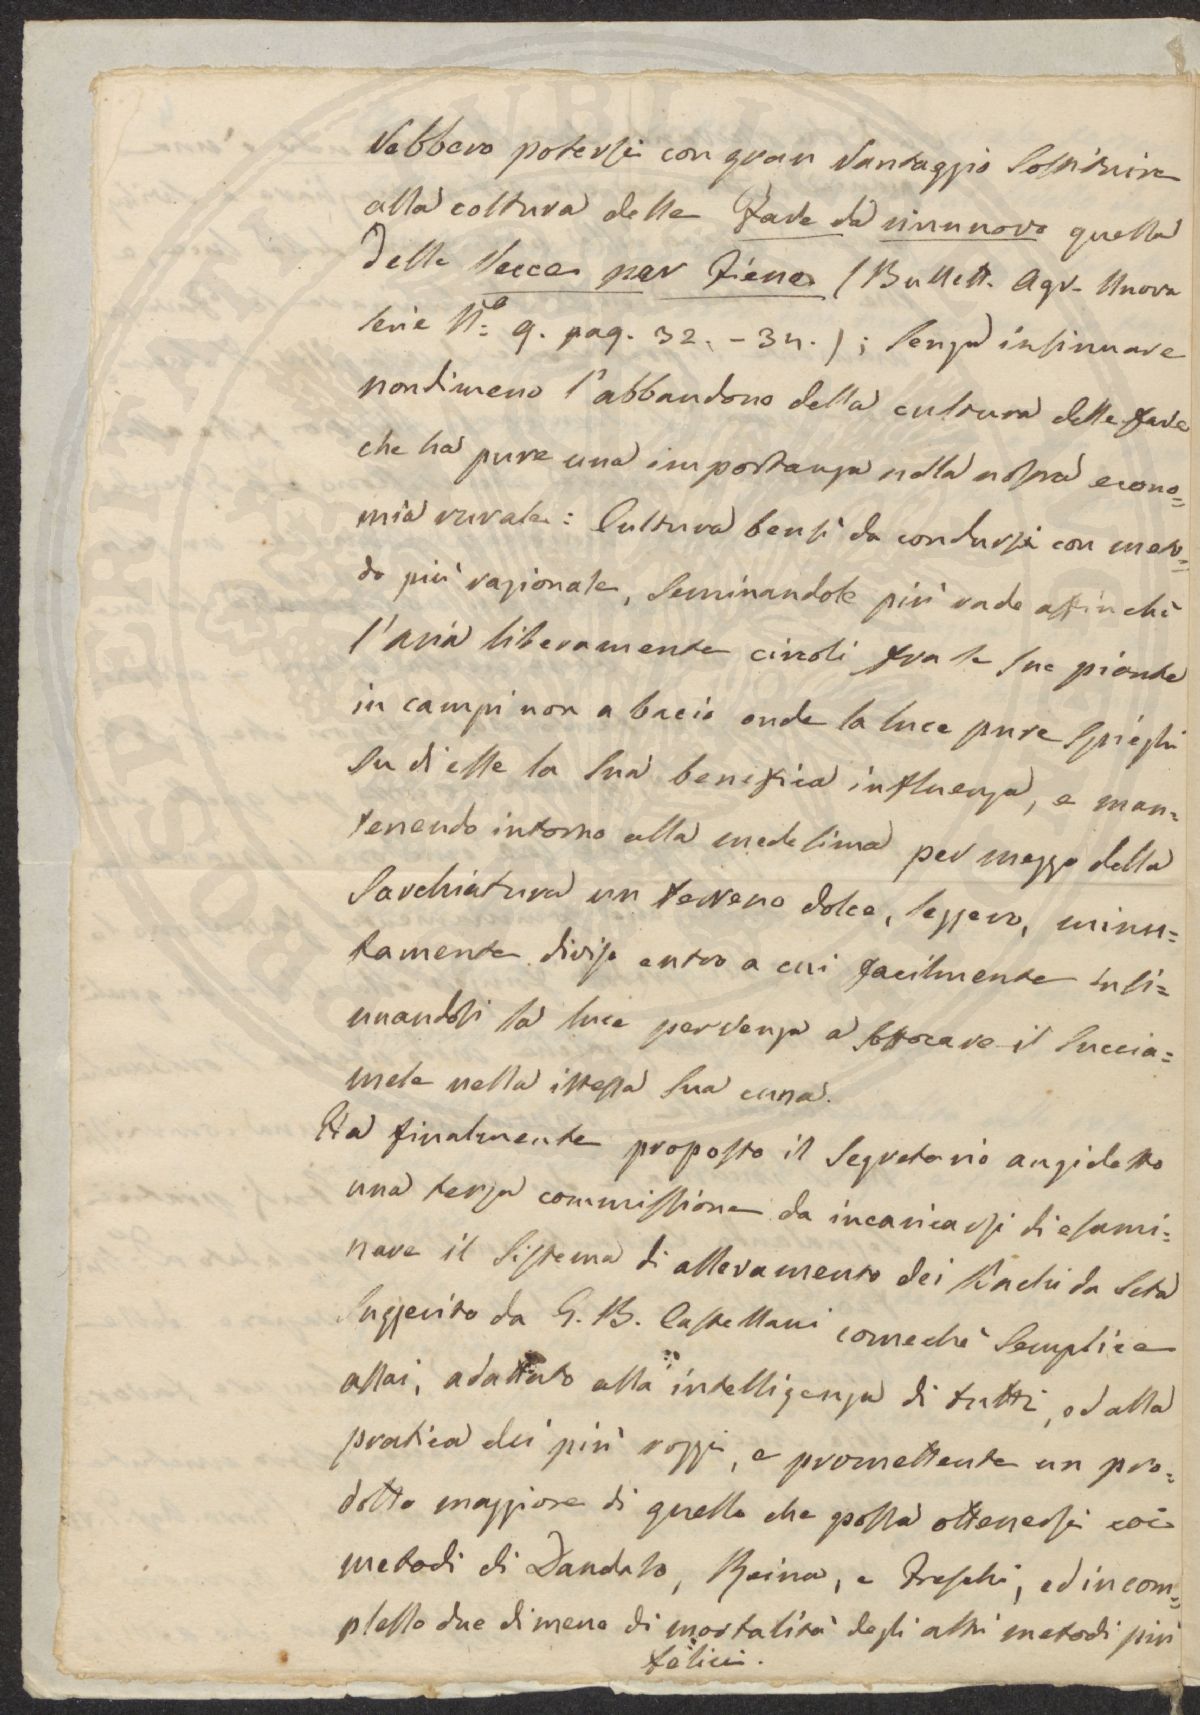 rebbero potersi con gran vantaggio sostituire
alla coltura delle Fave da rinnuovo quella
delle Vecce per Fieno (Bullett. Agr. Nuova
serie N.o 9. pag. 32. - 34.); senza insinuare
nondimeno l'abbandono della cultura delle fave
che ha pure una importanza nella nostra econo=
mia rurale: Cultura bensì da condursi con meto=
do più razionale, seminandole più rade affinchè
l'aria liberamente circoli fra le sue piante
in campi non a bacio onde la luce pure spieghi
su di esse la sua benefica influenza, e man=
tenendo intorno alla medesima per mezzo della
sarchiatura un terreno dolce, leggero, minu=
tamente diviso entro a cui facilmente insi=
nuandosi la luce pervenga a soffocare il succia=
mele nella istessa sua cuna.
Ha finalmente proposto il Segretario anzidetto
una terza commissione da incaricarsi di esami=
nare il sistema di allevamento dei bachi da seta
suggerito da G. B. Castellani comechè semplice
assai, adattato alla intelligenza di tutti, ed alla
pratica dei più rozzi, e promettente un pro=
dotto maggiore di quello che possa ottenersi coi
metodi di Dandolo, Reina, e Freschi, ed in com=
plesso due di meno di mortalità degli altri metodi più
felici.